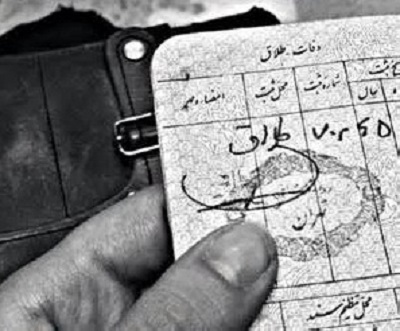 وفات ـ طلاق
ثبت
شماره ثبت محل ثبت امضاء و مهر
سال
طلاق
تهران
محل تنظیم سند